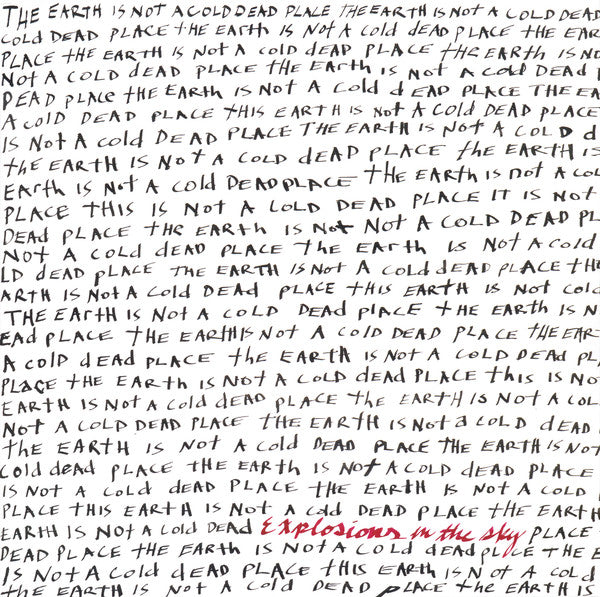 THE EARTH IS NOT A COLD DEAD PLACE THE EARTH IS NOT A COLD DEAD
COLD DEAD PLACE THE EARTH IS NOT A COLD DEAD PLACE THE EAR
PLACE THE EARTH IS NOT A COLD DEAD PLACE THE EARTH IS NO
NOT A COLD DEAD PLACE THE EARTH IS NOT A COLD DEAD P
DEAD PLACE THE EARTH IS NOT A COLD DEAD PLACE THE EA
A COLD DEAD PLACE THIS EARTH IS NOT A COLD DEAD PLACE
IS NOT A COLD DEAD PLACE THE EARTH IS NOT A COLD D
THE EARTH IS NOT A COLD DEAD PLACE THE EARTH IS
EARTH IS NOT A COLD DEAD PLACE THE EARTH IS NOT A COL
PLACE THIS IS NOT A COLD DEAD PLACE IT IS NOT
DEAD PLACE THE EARTH IS NOT NOT A COLD DEAD PL
NOT A COLD DEAD PLACE THE EARTH IS NOT A COLD
LD DEAD PLACE THE EARTH IS NOT A COLD DEAD PLACE THE
ARTH IS NOT A COLD DEAD PLACE THIS EARTH IS NOT COLD
THE EARTH IS NOT A COLD DEAD PLACE THE EARTH IS N
EAD PLACE THE EARTH IS NOT A COLD DEAD PLACE THE EAR
A COLD DEAD PLACE THE EARTH IS NOT A COLD DEAD PL
PLACE THE EARTH IS NOT A COLD DEAD PLACE THIS IS NO
EARTH IS NOT A COLD DEAD PLACE THE EARTH IS NOT A COL
NOT A COLD DEAD PLACE THE EARTH IS NOT A COLD DEAD
THE EARTH IS NOT A COLD DEAD PLACE THE EARTH IS NOT
COLD DEAD PLACE THE EARTH IS NOT A COLD DEAD PLACE
IS NOT A COLD DEAD PLACE THE EARTH IS NOT A COLD
PLACE THIS EARTH IS NOT A COLD DEAD PLACE THE EARTH
EARTH IS NOT A COLD DEAD Explosions in the sky PLACE
DEAD PLACE THE EARTH IS NOT A COLD DEAD PLACE THE E
IS NOT A COLD DEAD PLACE THIS EARTH IS NOT A COLD
THE EARTH IS NOT A COLD DEAD PLACE THE EARTH IS